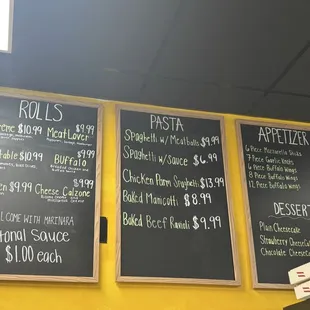 ROLLS
$10.99 MeatLover $9.99
Buffalo $9.99
$9.99 Cheese Calzone $9.99
COME WITH MARINARA
Sauce
$1.00 each
PASTA
Spaghetti w/ Meatballs $9.99
Spaghetti w/ Sauce $6.99
Chicken Parm Spaghetti $13.99
Baked Manicotti $8.99
Baked Beef Ravioli $9.99
APPETIZER
6 Piece Mozzarella Sticks
7 Piece Garlic Knots
6 Piece Buffalo Wings
8 Piece Buffalo Wings
12 Piece Buffalo Wings
DESSERT
Plain Cheesecake
Strawberry Cheesecake
Chocolate Cheesecake